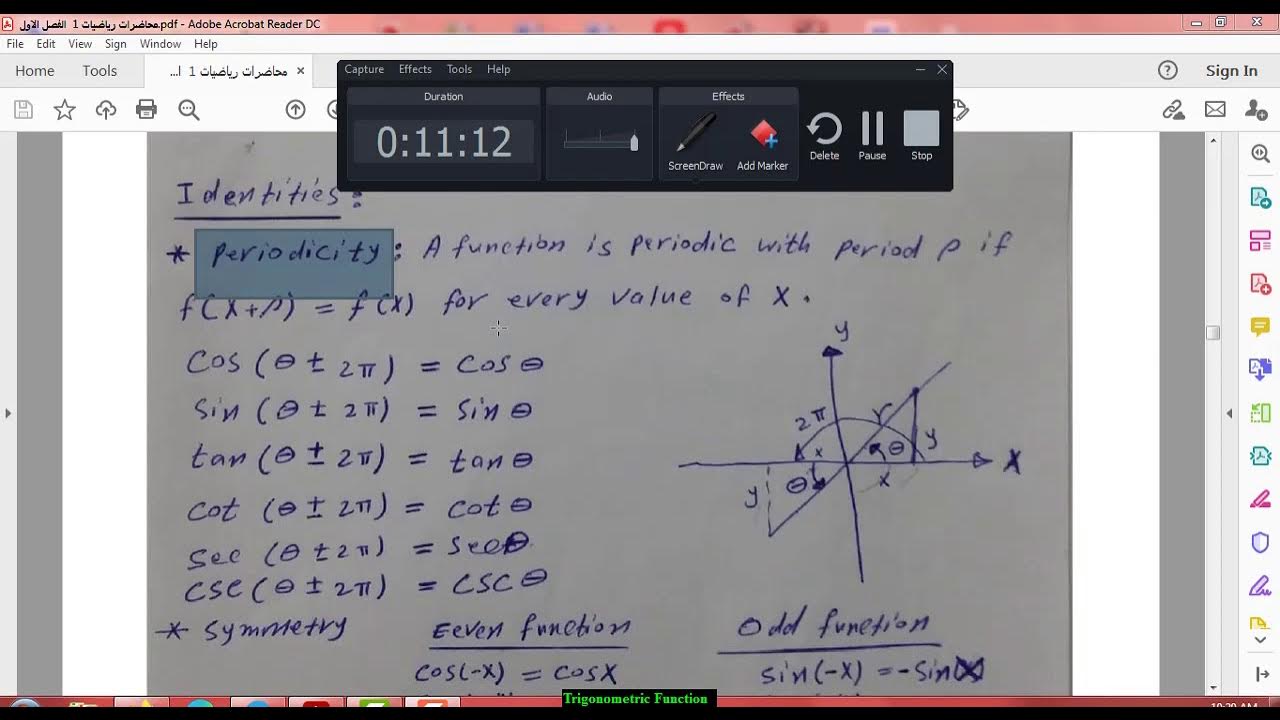 محاضرات رياضيات 1 الفصل الاول.pdf - Adobe Acrobat Reader DC
File Edit View Sign Window Help
Home Tools محاضرات رياضيات 1 ا... × ? Sign In
Capture Effects Tools Help
Duration Audio Effects
0:11:12
ScreenDraw Add Marker Delete Pause Stop
Identities:
* Periodicity: A function is periodic with period p if
f(x+p) = f(x) for every value of x.
Cos (θ ± 2π) = Cos θ
Sin (θ ± 2π) = Sin θ
tan (θ ± 2π) = tan θ
Cot (θ ± 2π) = Cot θ
Sec (θ ± 2π) = Sec θ
CSC (θ ± 2π) = CSC θ
y
2π r y
x θ X
y θ x
* Symmetry Eeven function Odd function
cos(-x) = cosx sin(-x) = -sinx
Trigonometric Function
10:20 AM